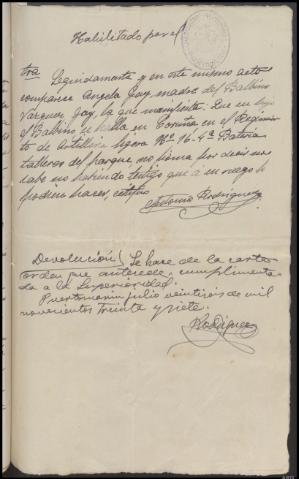 Habilitado para el
tra
Seguidamente y en este mismo acto
comparece Angela Gay, madre de Balbino
Vazquez Gay, la que manifiesta: Que su hijo
el Balbino se halla en Coruña en el Regimien
to de Artilleria Ligera Nº 16-4ª Bateria
talleres del parque, no firma por decir no
sabe no habiendo testigo que a su ruego lo
pudiera hacer, certifico
Antonio Rodriguez
Devolución/ Se hace de la carta
orden que antecede, cumplimenta
da a la Superioridad.
Puertomarin julio veintiros de mil
novecientos treinta y siete.
Rodriguez